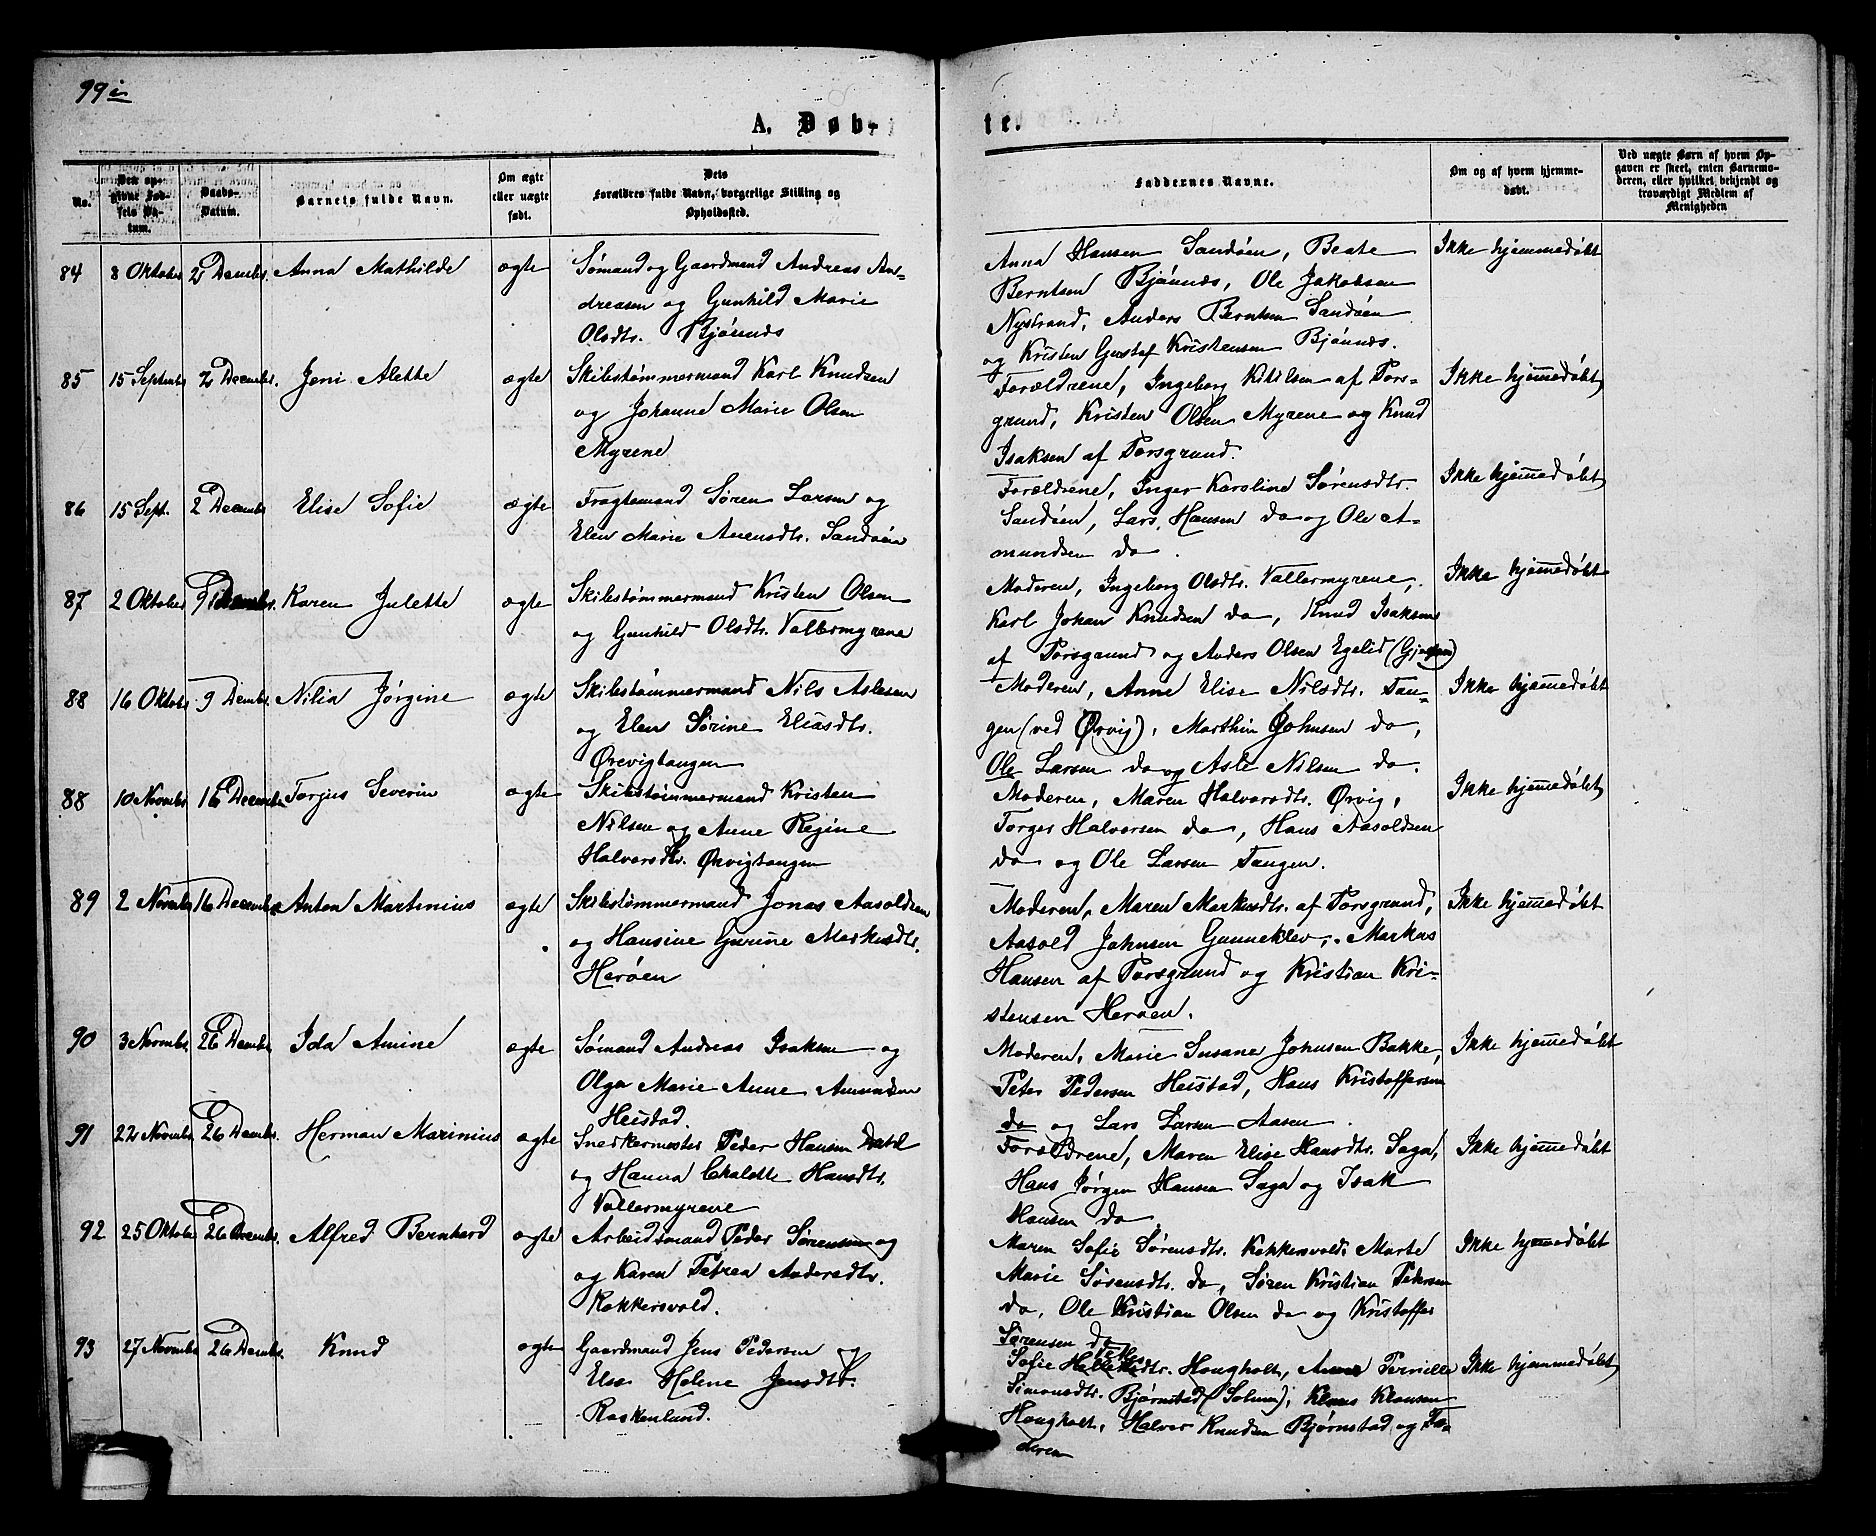 99 i
A. Døbte.
No.
Den opgivne Fødsels Datum.
Daabs-Datum.
Barnets fulde Navn.
Om ægte eller uægte født.
Dets Forældres fulde Navn, borgerlige Stilling og Opholdssted.
Faddernes Navne.
Om og af hvem hjemmedøbt.
Ved uægte Børn af hvem Opgaven er skeet, enten Barnemoderen, eller hvilket bekjendt og troværdigt Medlem af Menigheden
84 8 Oktober 2 Decembr. Anna Mathilde ægte Sømand og Gaardmand Andreas An-
dreasen og Gunhild Marie
Olsdtr. Bjønnes
Anna Hansen Sandøen, Beate
Berntsen Bjønnes, Ole Jakobsen
Nystrand, Anders Berntsen Sandøen
og Kristen Gustaf Kristensen Bjønnes.
Ikke hjemmedøbt
85 15 Septembr 2 Decembr. Jeni Alette ægte Skibstømmermand Karl Knudsen
og Johanne Marie Olsen
Myrene
Forældrene, Ingeborg Kittilsen af Pors-
grund, Kristen Olsen Myrene og Knud
Isaksen af Porsgrund.
Ikke hjemmedøbt
86 15 Sept. 2 Decembr Elise Sofie ægte Fragtemand Søren Larsen og
Elen Marie Anensdtr. Sandøen
Forældrene, Inger Karoline Sørensdtr.
Sandøen, Lars Hansen do og Ole A-
mundsen do.
Ikke hjemmedøbt
87 2 Oktober 9 Decembr. Karen Julette ægte Skibstømmermand Kristen Olsen
og Gunhild Olsdtr. Vallermyrene
Moderen, Ingeborg Olsdtr. Vallermyrene,
Karl Johan Knudsen do, Knud Isaksen
af Porsgrund og Anders Olsen Egelid (Gjerpen)
Ikke hjemmedøbt
88 16 Oktobr 9 Decembr. Nilia Jørgine ægte Skibstømmermand Nils Aslesen
og Elen Sørine Eliasdtr.
Ørevigtangen
Moderen, Anne Elise Nilsdtr. Tan-
gen (ved Ørvig), Marthin Johnsen do,
Ole Larsen do og Asle Nilsen do.
Ikke hjemmedøbt
88 10 Novembr 16 Decembr Torjus Severin ægte Skibstømmermand Kristen
Nilsen og Anne Regine
Halvorsdtr. Ørvigtangen
Moderen, Maren Halvorsdtr. Ørvig,
Torger Halvorsen do, Hans Aasoldsen
do og Ole Larsen Tangen.
Ikke hjemmedøbt
89 2 Novembr 16 Decembr Anton Martinius ægte Skibstømmermand Jonas Aasoldsen
og Hansine Gurine Markusdtr.
Herøen
Moderen, Maren Markusdtr. af Porsgrund,
Aasold Johnsen Gunneklev, Markus
Hansen af Porsgrund og Kristian Kri-
stensen Herøen.
Ikke hjemmedøbt
90 3 Novembr. 26 Decembr Ida Amine ægte Sømand Andreas Isaksen og
Olga Marie Anne Amundsen
Heistad.
Moderen, Marie Susane Johnsen Bakke,
Peter Pedersen Heistad, Hans Kristoffersen
do og Lars Larsen Aasen.
Ikke hjemmedøbt
91 22 Novembr 26 Decembr. Herman Marinius ægte Snedkermester Peder Hansen
og Hanna Chalotte Hansdtr.
Vallermyrene
Forældrene, Maren Elise Hansdtr. Saga,
Hans Jørgen Hansen Saga og Isak
Hansen do
Ikke hjemmedøbt
92 25 Oktober 26 Decembr. Alfred Bernhard ægte Arbeidsmand Peder Sørensen og
og Karen Petrea Andersdtr.
Kokkersvold.
Maren Sofie Sørensdtr. Kokkersvold, Marte
Marie Sørensdtr. do, Søren Kristian Pedersen
do, Ole Kristian Olsen do og Kristoffer
Sørensen do
Ikke hjemmedøbt
93 27 Novembr 26 Decembr. Knud ægte Gaardmand Jens Pedersen og
Else Helene Jensdtr.
Raskenlund.
Sofie Hougholt, Anne Pernille
Simonsdtr. Bjørnstad (Solum), Klaus Klausen
Hougholt, Halvor Knudsen Bjørnstad og Fa-
deren
Ikke hjemmedøbt